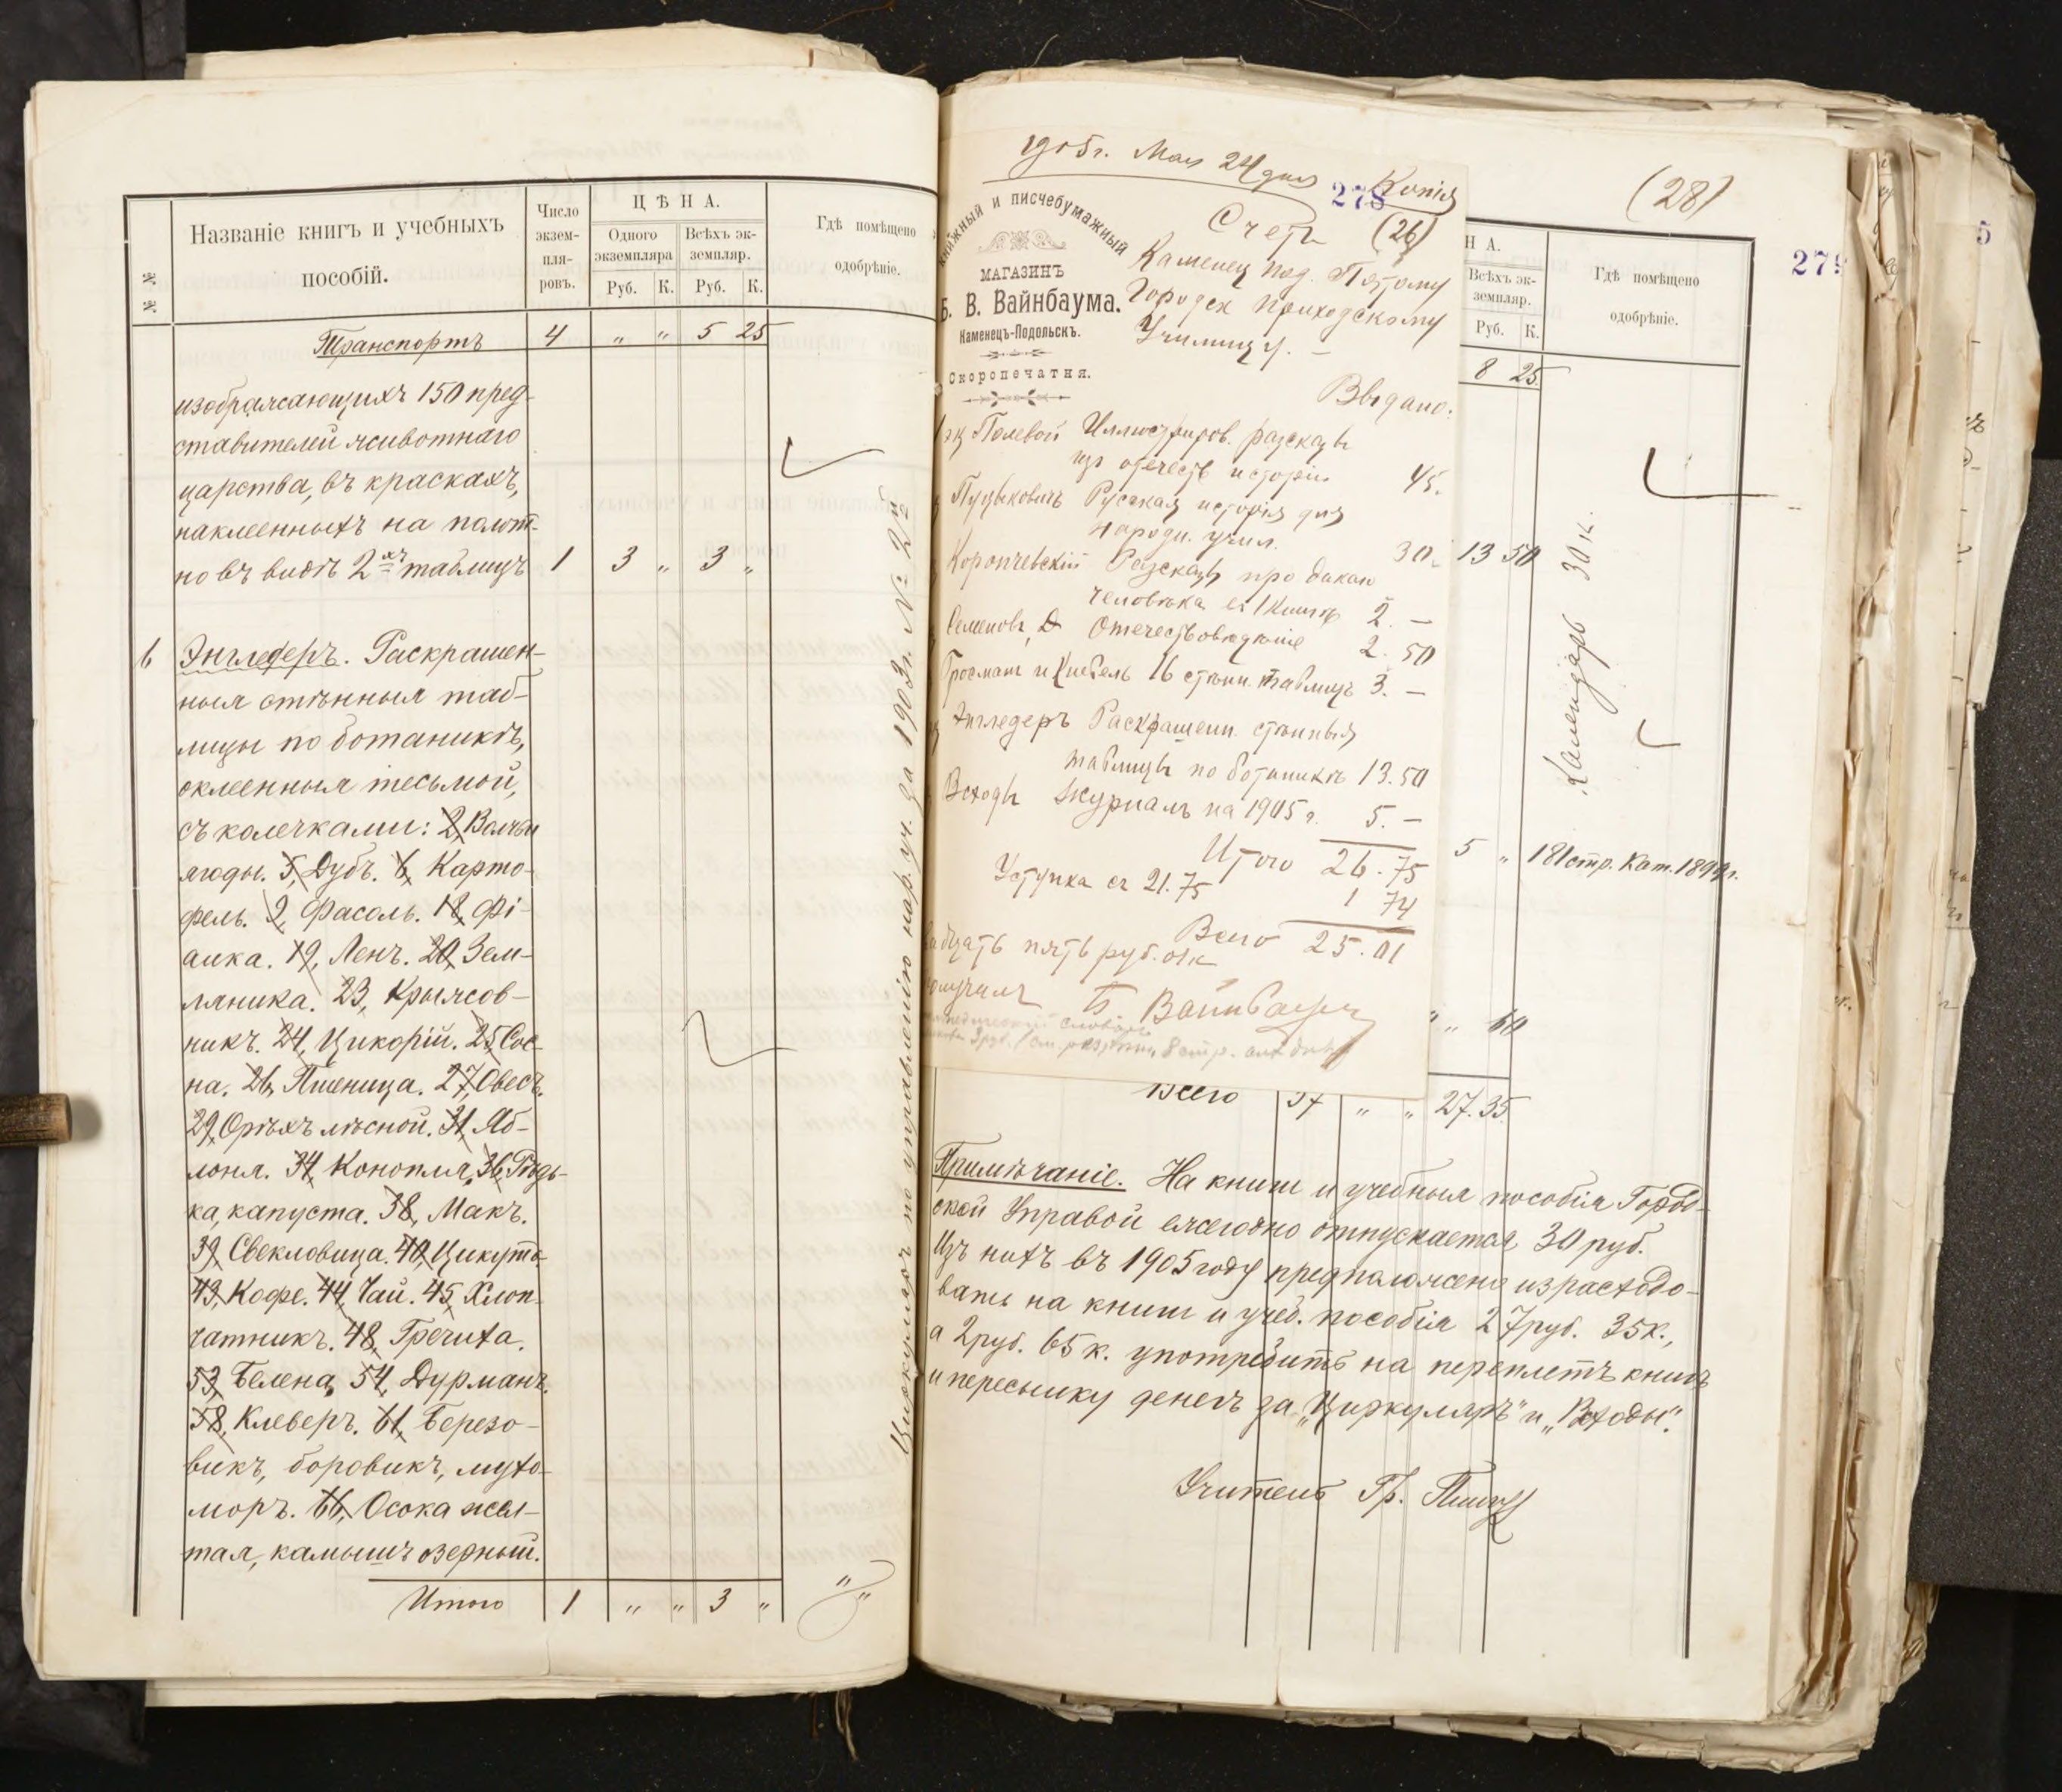 №№
Названіе книгъ и учебныхъ
пособій.
Число
экзем-
пля-
ровъ.
ЦѢНА.
Одного
экземпляра
Всѣхъ эк-
земпляр.
Руб. К. Руб. К.
Гдѣ помѣщено
одобрѣніе.
Транспортъ 4 " " 5 25
изображающихъ 150 пред-
ставителей животнаго
царства, въ краскахъ,
наклеенныхъ на полот-
но въ видѣ 2хъ таблицъ 1 3 " 3 "
6 Энгледеръ. Раскрашен-
ныя стѣнныя таб-
лицы по ботаникѣ,
оклеенныя тесьмой,
съ колечками: 2, Волчьи
ягоды. 5, Дубъ. 6, Карто-
фель. 9, Фасоль. 18, Фі-
алка. 19, Ленъ. 20, Зем-
ляника. 23, Крыжов-
никъ. 24, Цикорій. 25, Сос-
на. 26, Пшеница. 27, Овесъ.
29, Орѣхъ лѣсной. 31, Яб-
лоня. 34, Конопля, 36, Рѣдь-
ка, капуста. 38, Макъ.
39, Свекловица. 40, Цикута,
43, Кофе. 44, Чай. 45, Хлоп-
чатникъ. 48, Гречиха.
53, Белена, 54, Дурманъ.
58, Клеверъ. 61, Березо-
викъ, боровикъ, мухо-
моръ. 66, Осока жел-
тая, камышъ озерный.
Итого 1 " " 3 "
Циркуляръ по управленію нар. уч. за 1903 г. № 2й
1905 г. Мая 24 дня
278 Копія
Счетъ (26)
книжный и писчебумажный
МАГАЗИНЪ
Б. В. Вайнбаума.
Каменецъ-Подольскъ.
Скоропечатня.
Каменец Под. Пятому
Городск Приходскому
Училищу. –
Выдано.
1 эк Полевой Иллюстриров. разсказы
изъ отечеств исторіи 45.
Пуцыковичъ Русская исторія для
народн. учил. 30.
Коропчевскій Разсказы про дикаго
человѣка въ 1 книгѣ 2. –
Семеновъ, Д Отечествовѣдѣніе 2. 50
Гросманъ и Кнебель 16 стѣнн. таблицъ 3. –
Энгледеръ Раскрашенн. стѣнныя
таблицы по ботаникѣ 13.50
Всходы журналъ на 1905 г. 5. –
Итого 26.75
Уступка съ 21.75 1 74
Всего 25.01
пять руб. 01к
Б Вайнбаумъ
(28)
279
5
НА.
Всѣхъ эк-
земпляр.
Руб. К.
Гдѣ помѣщено
одобрѣніе.
8 25.
13 50
Календарь 30 к.
5 " 181 стр. Кат. 1899 г.
" " 60
Всего 37 " " 27.35
Примѣчаніе. На книги и учебныя пособія Город-
ской Управой ежегодно отпускается 30 руб.
Изъ нихъ въ 1905 году предположено израсходо-
вать на книги и учеб. пособія 27 руб. 35 к.,
а 2 руб. 65 к. употребить на переплетъ книгъ
и пересылку денегъ за „Циркуляръ" и „Всходы".
Учитель Гр.